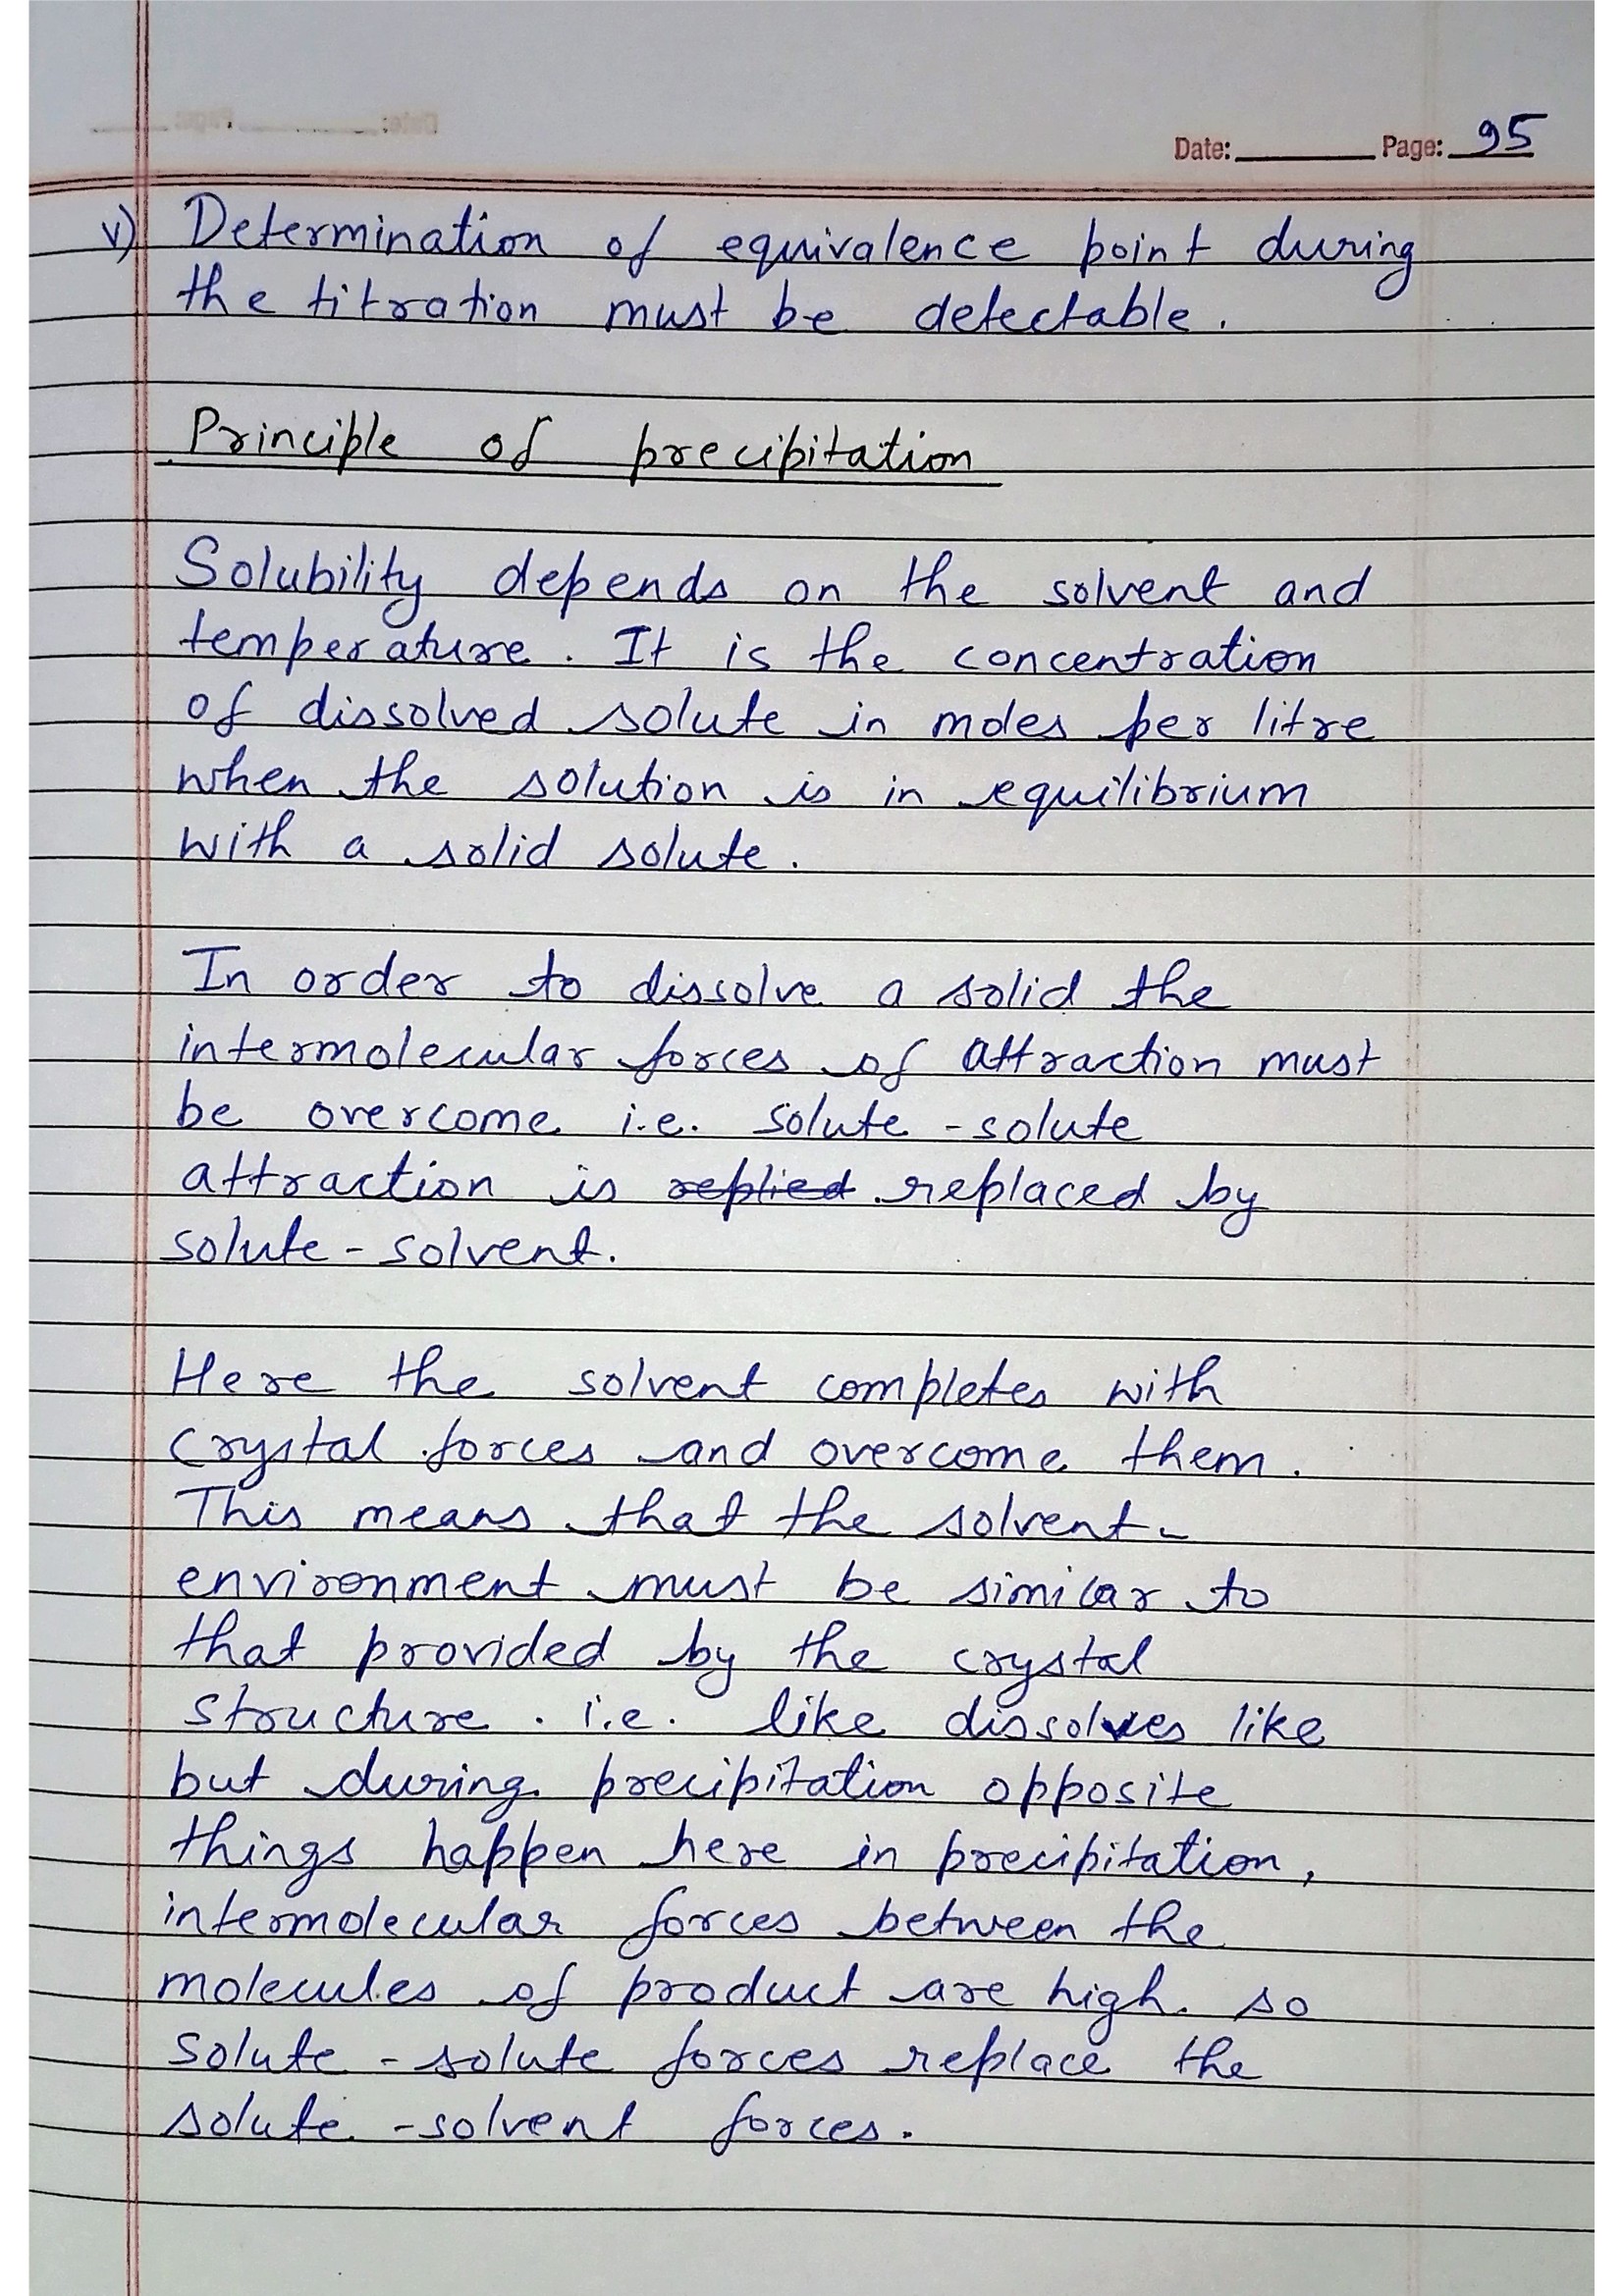 Date: Page: 95
v) Determination of equivalence point during
the titration must be detectable.
Principle of precipitation
Solubility depends on the solvent and
temperature. It is the concentration
of dissolved solute in moles per litre
when the solution is in equilibrium
with a solid solute.
In order to dissolve a solid the
intermolecular forces of attraction must
be overcome i.e. solute - solute
attraction is replied replaced by
solute - solvent.
Here the solvent completes with
crystal forces and overcome them.
This means that the solvent -
environment must be similar to
that provided by the crystal
structure. i.e. like dissolves like
but during precipitation opposite
things happen here in precipitation,
intermolecular forces between the
molecules of product are high. so
solute - solute forces replace the
solute - solvent forces.